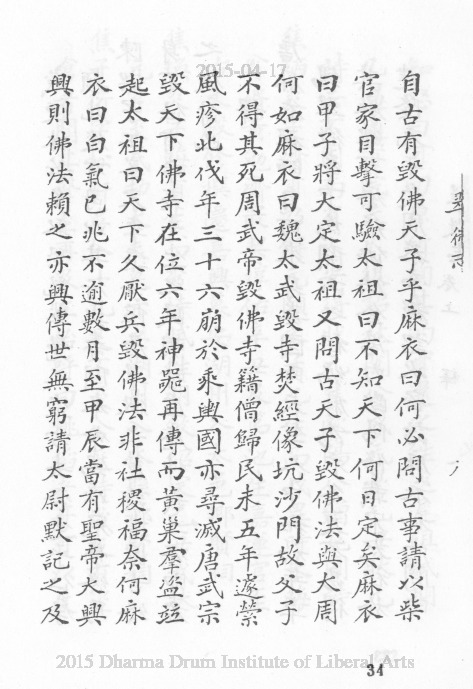 2015-04-17
自古有毀佛天子乎麻衣曰何必問古事請以柴
官家目擊可驗太祖曰不知天下何日定矣麻衣
曰甲子將大定太祖又問古天子毀佛法與大周
何如麻衣曰魏太武毀寺焚經像坑沙門故父子
不得其死周武帝毀佛寺籍僧歸民未五年遽縈
風疹北伐年三十六崩於乘輿國亦尋滅唐武宗
毀天下佛寺在位六年神器再傳而黃巢羣盜竝
起太祖曰天下久厭兵毀佛法非社稷福奈何麻
衣曰白氣已兆不逾數月至甲辰當有聖帝大興
興則佛法賴之亦興傳世無窮請太尉默記之及
34
2015 Dharma Drum Institute of Liberal Arts